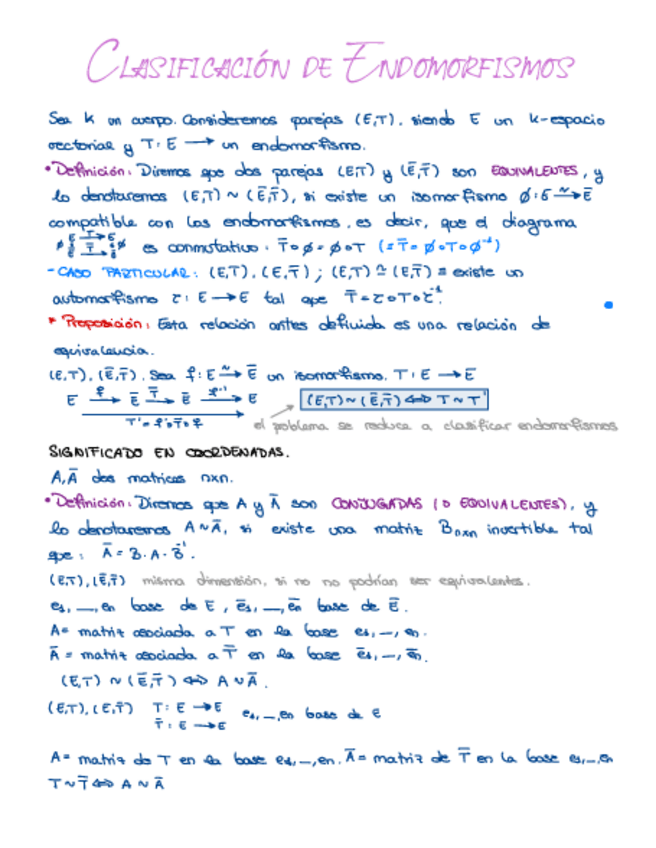 CLASIFICACIÓN DE ENDOMORFISMOS
Sea K un cuerpo. Consideremos parejas (E,T), siendo E un k-espacio
vectorial y T: E → un endomorfismo.
• Definición: Diremos que dos parejas (E,T) y (Ē,T̄) son EQUIVALENTES, y
lo denotaremos (E,T) ~ (Ē,T̄), si existe un isomorfismo ϕ: E ⥲ Ē
compatible con los endomorfismos, es decir, que el diagrama
es conmutativo: T̄∘ϕ = ϕ∘T (≡ T̄ = ϕ∘T∘ϕ⁻¹)
- CASO PARTICULAR: (E,T), (E,T̄) ; (E,T) ≅ (E,T̄) ≡ existe un
automorfismo τ: E → E tal que T̄ = τ∘T∘τ⁻¹.
• Proposición: Esta relación antes definida es una relación de
equivalencia.
(E,T), (Ē,T̄). Sea f: E ⥲ Ē un isomorfismo. T: E → Ē
E →f Ē →T̄ Ē →f⁻¹ E (E,T) ~ (Ē,T̄) ⟺ T ~ T'
T' = f⁻¹∘T̄∘f el problema se reduce a clasificar endomorfismos
SIGNIFICADO EN COORDENADAS.
A, Ā dos matrices nxn.
• Definición: Diremos que A y Ā son CONJUGADAS (O EQUIVALENTES), y
lo denotaremos A ~ Ā, si existe una matriz Bnxn invertible tal
que: Ā = B·A·B⁻¹.
(E,T), (Ē,T̄) misma dimensión, si no no podrían ser equivalentes.
e₁, ..., en base de E, ē₁, ..., ēn base de Ē.
A = matriz asociada a T en la base e₁, ..., en.
Ā = matriz asociada a T̄ en la base ē₁, ..., ēn.
(E,T) ~ (Ē,T̄) ⟺ A ~ Ā.
(E,T), (E,T̄) T: E → E e₁, ..., en base de E
T̄: E → E
A = matriz de T en la base e₁, ..., en. Ā = matriz de T̄ en la base e₁, ..., en
T ~ T̄ ⟺ A ~ Ā